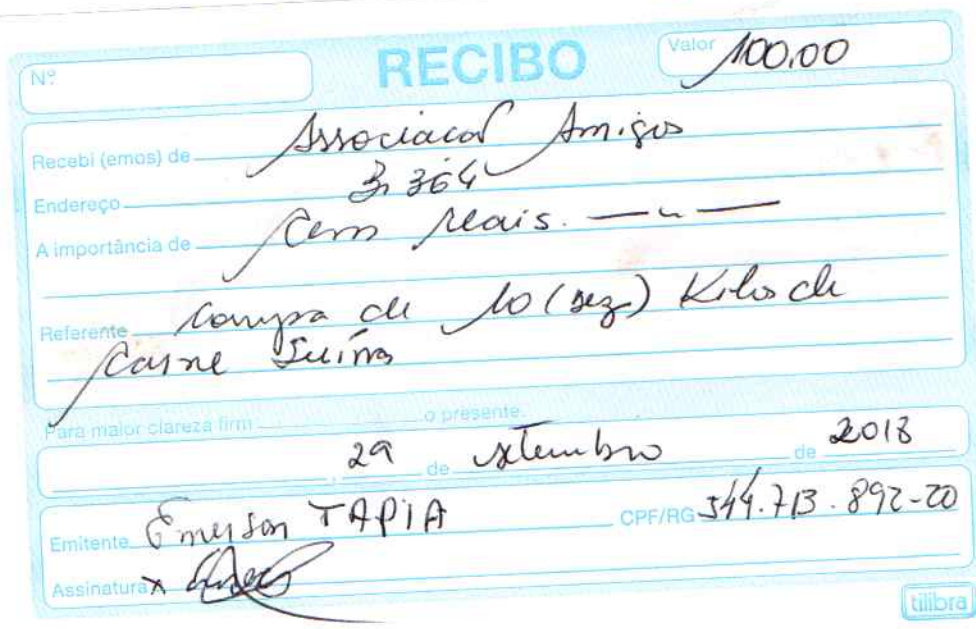 Nº
RECIBO
Valor 100,00
Recebi (emos) de Associacao Amigos
Endereço 3.364
A importância de Cem reais.
Referente Compra de 10 (dez) Kilos de
Carne Suína
Para maior clareza firm o presente.
29 de setembro de 2018
Emitente Emerson TAPIA CPF/RG 544.713.892-20
Assinatura X
tilibra